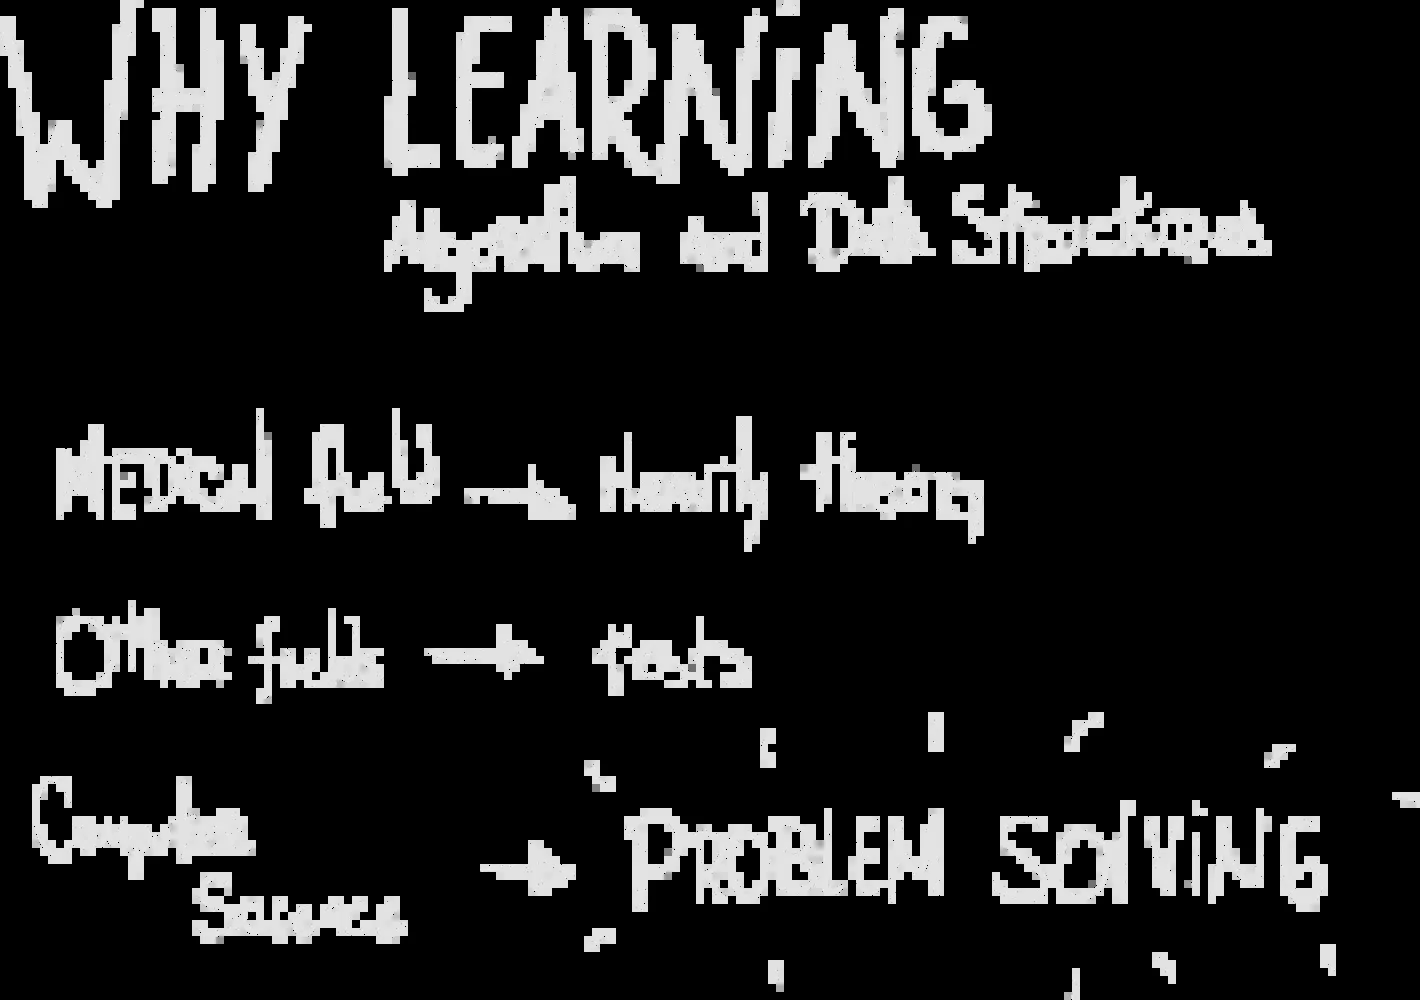 WHY LEARNING
Algorithm and Data Structures
MEDICAL field → Heavily theory
Other fields →
Computer → PROBLEM SOLVING
Science